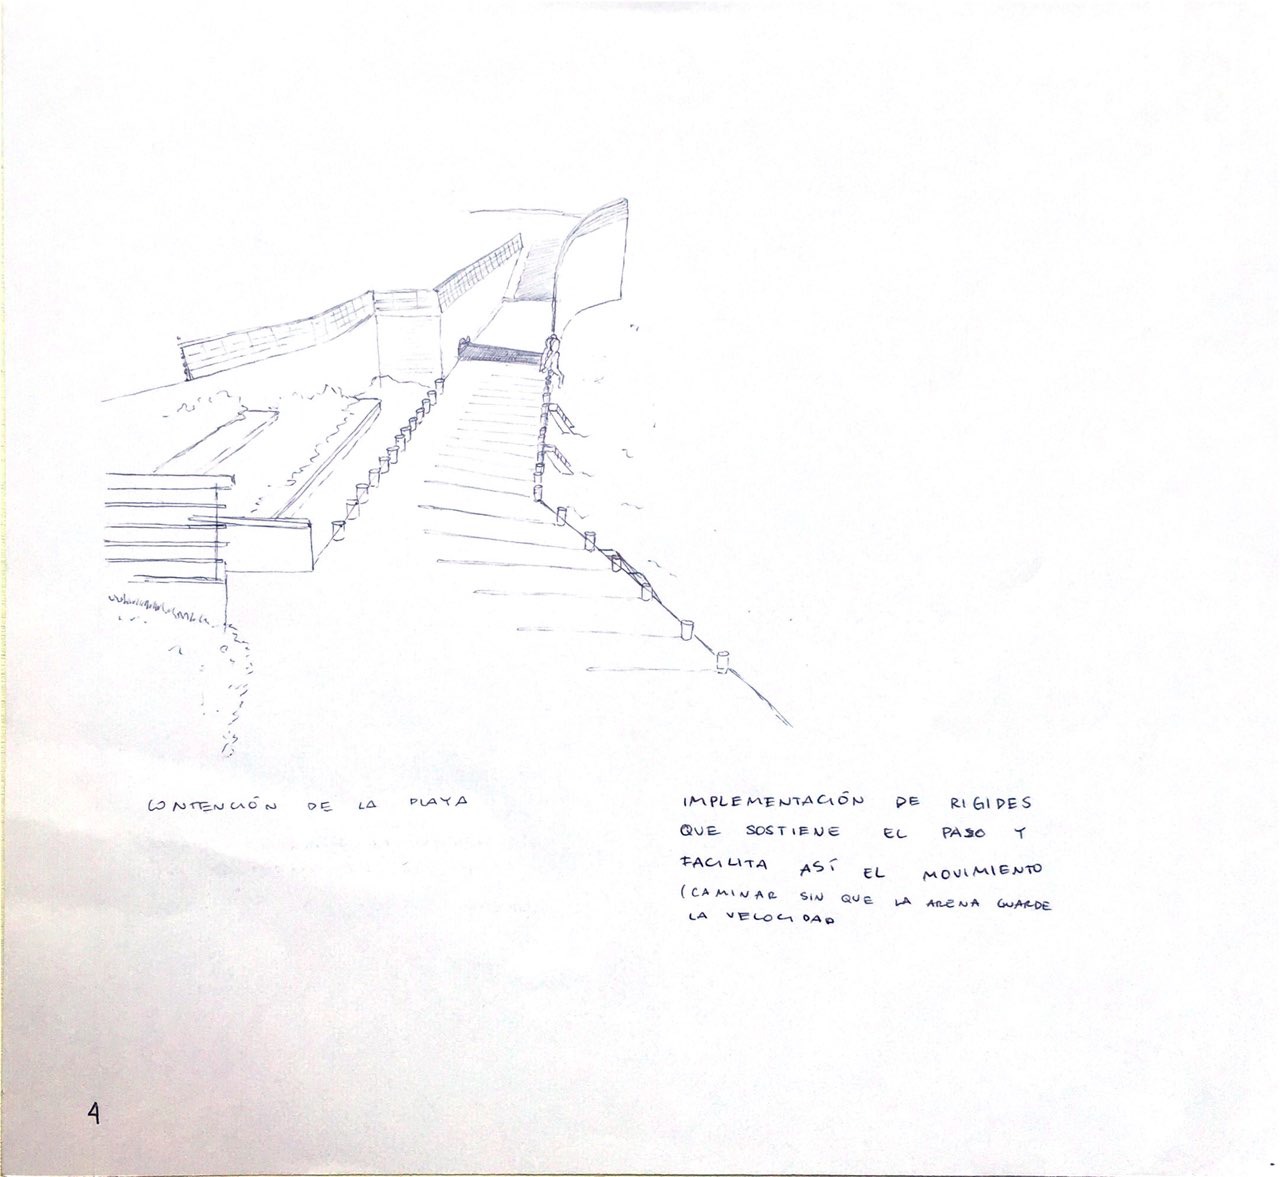 CONTENCIÓN DE LA PLAYA
IMPLEMENTACIÓN DE RIGIDES
QUE SOSTIENE EL PASO Y
FACILITA ASÍ EL MOVIMIENTO
(CAMINAR SIN QUE LA ARENA GUARDE
LA VELOCIDAD
4